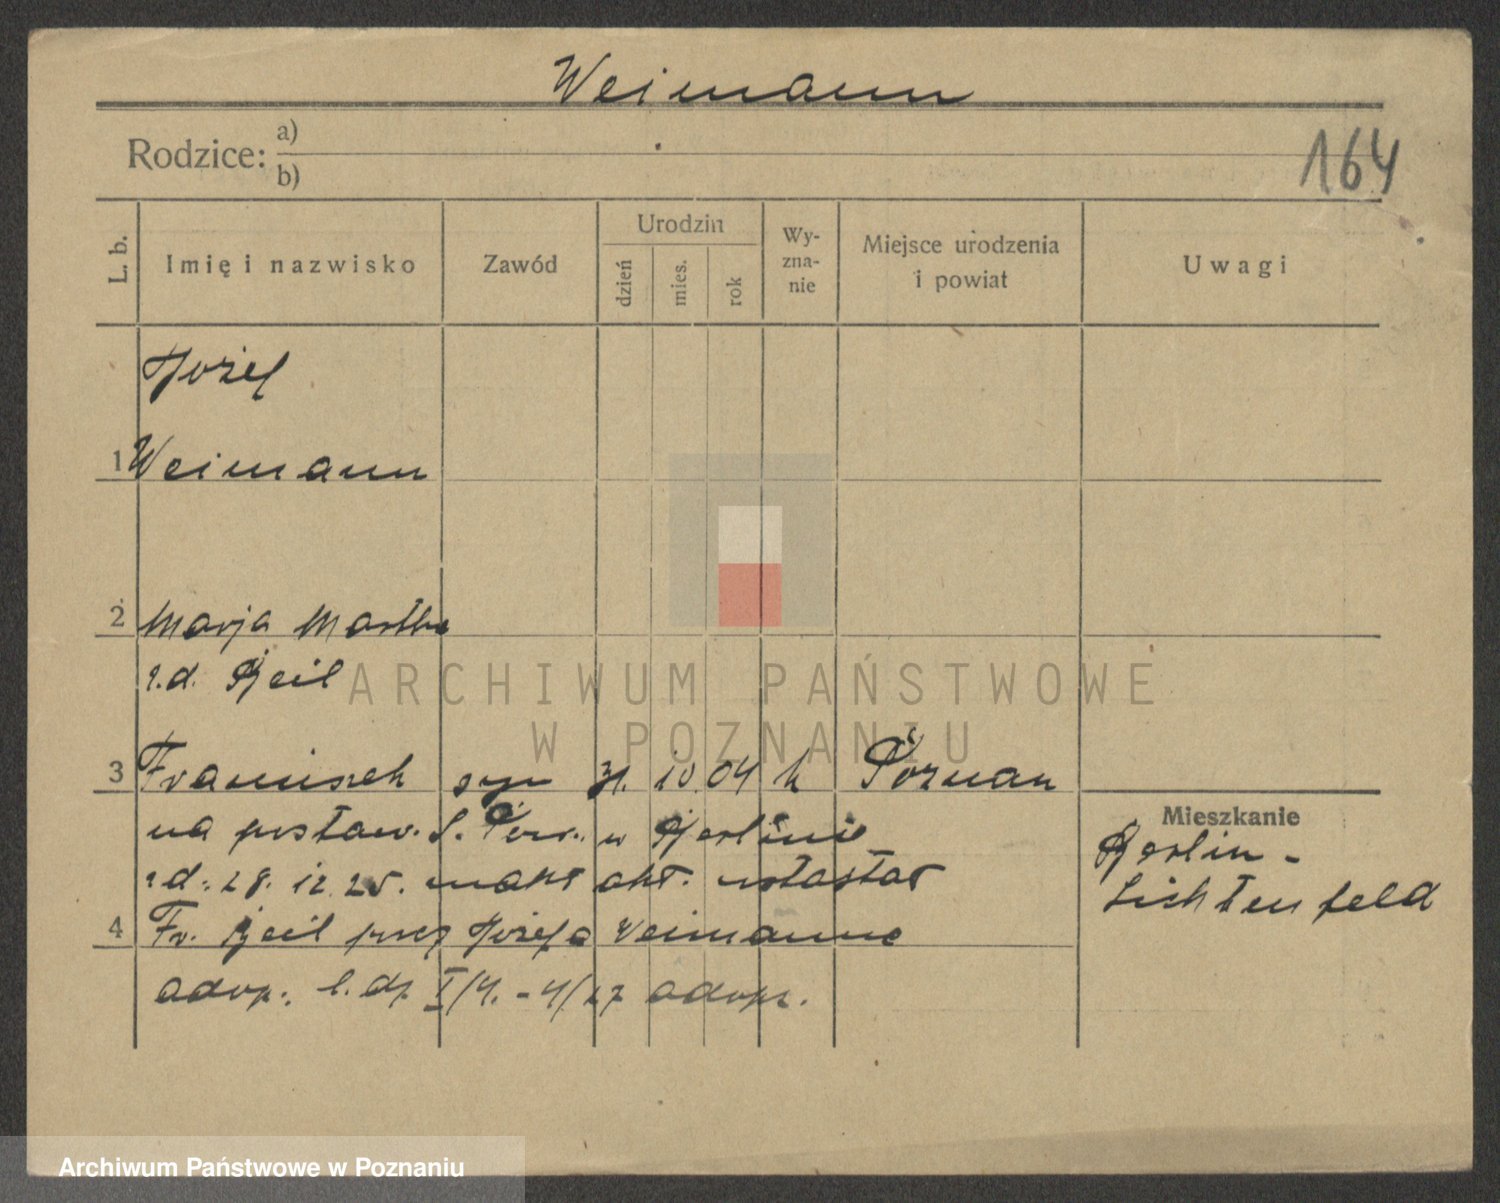 Weimann
Rodzice: a)
b)
164
L. b.
Imię i nazwisko
Zawód
Urodzin
dzień
mies.
rok
Wy-
zna-
nie
Miejsce urodzenia
i powiat
Uwagi
Józef
1 Weimann
2 Marja Martha
z.d. Beil
3 Franciszek syn 31. 10. 04 k Poznań
na postaw. S. Pow. w Berlinie
z d. 28. 12. 25. akt. został
4 Fr. Beil przez Józefa Weimanna
adop. I/4. - 4/27
Mieszkanie
Berlin -
Lichtenfeld
ARCHIWUM PAŃSTWOWE
W POZNANIU
Archiwum Państwowe w Poznaniu